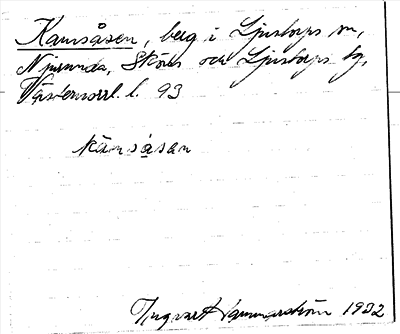 Kamsåsen, berg i Ljustorps sn,
Njurunda, Sköns och Ljustorps tg,
Västernorrl. l. 93
kàmsa̱san
Ingvar Hammarström 1932